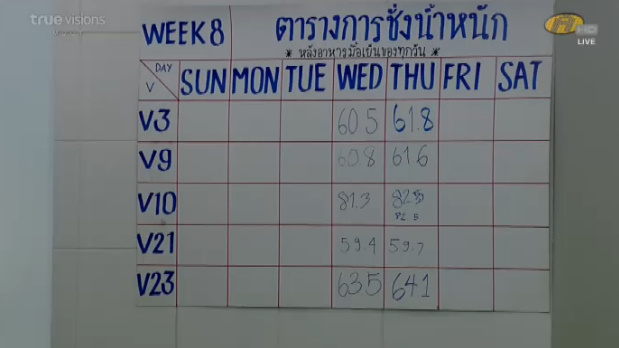 truevisions
HD
LIVE
WEEK 8 ตารางการชั่งน้ำหนัก
* หลังอาหารมื้อเย็นของทุกวัน *
DAY
V SUN MON TUE WED THU FRI SAT
V3 60.5 61.8
V9 60.8 61.6
V10 81.3
82.5
V21 59.4 59.7
V23 63.5 64.1